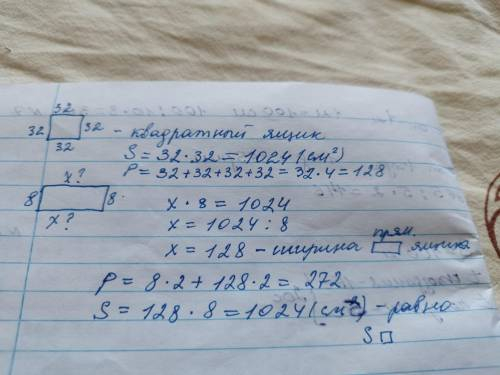 32
32 □ 32 - квадратный ящик
32
S = 32 · 32 = 1024 (см²)
P = 32 + 32 + 32 + 32 = 32 · 4 = 128
x?
8 8
x?
x · 8 = 1024
x = 1024 : 8
x = 128 - ширина прям. □ ящика
P = 8 · 2 + 128 · 2 = 272
S = 128 · 8 = 1024 (см²) - равно
S □